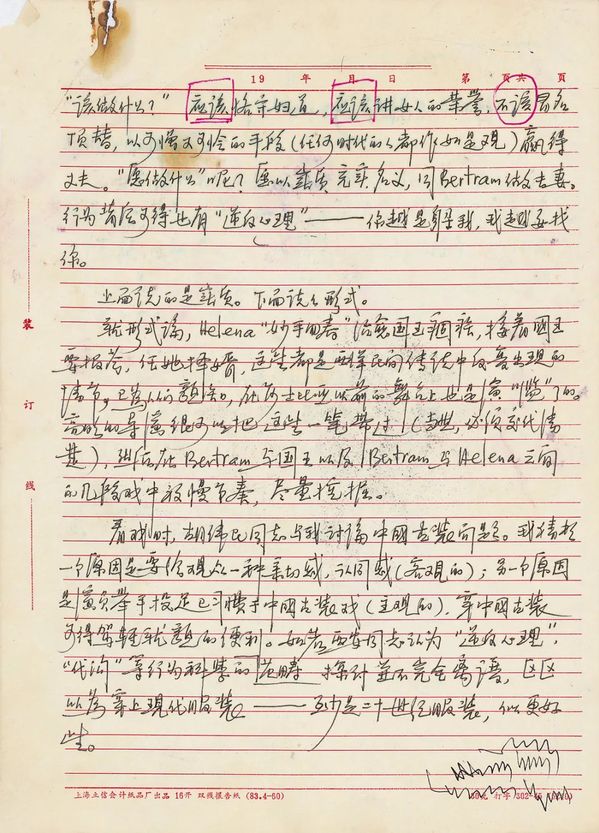 19 年 月 日 第 页共 页
“该做什么？” 应该恪守妇道，应该讲女人的荣誉，不该冒名
顶替，以可怜又可怜的手段（任何时代的人都作如是观）赢得
丈夫。“愿做什么”呢？愿以实质充实名义，同Bertram做夫妻。
行为背后可得也有“逆反心理”——你越是躲我，我越要找
你。
上面说的是实质。下面说说形式。
就形式论，Helena“妙手回春”治愈国王痼疾，接着国王
要报答，任她择婿，这些都是西洋民间传统中反复出现的
情节，已为人们熟知。在莎士比亚以前的舞台上也是演“腻”了的。
高明的导演很可以把这些一笔带过（当然，必须交代清
楚），然后在Bertram与国王以及Bertram与Helena之间
的几段戏中放慢节奏，尽量挖掘。
看戏时，胡伟民同志与我讨论中国古装问题。我猜想
一个原因是要给观众一种亲切感，认同感（客观的）；另一个原因
是演员举手投足已习惯于中国古装戏（主观的），穿中国古装
可得驾轻就熟的便利。如若西安同志认为“逆反心理”，
“代沟”等行为科学的范畴 探讨并不完全离谱，区区
以为穿上现代服装——至少是二十世纪服装，似更好
些。
装
订
线
上海立信会计纸品厂出品 16开 双线报告纸 (83.4-60)